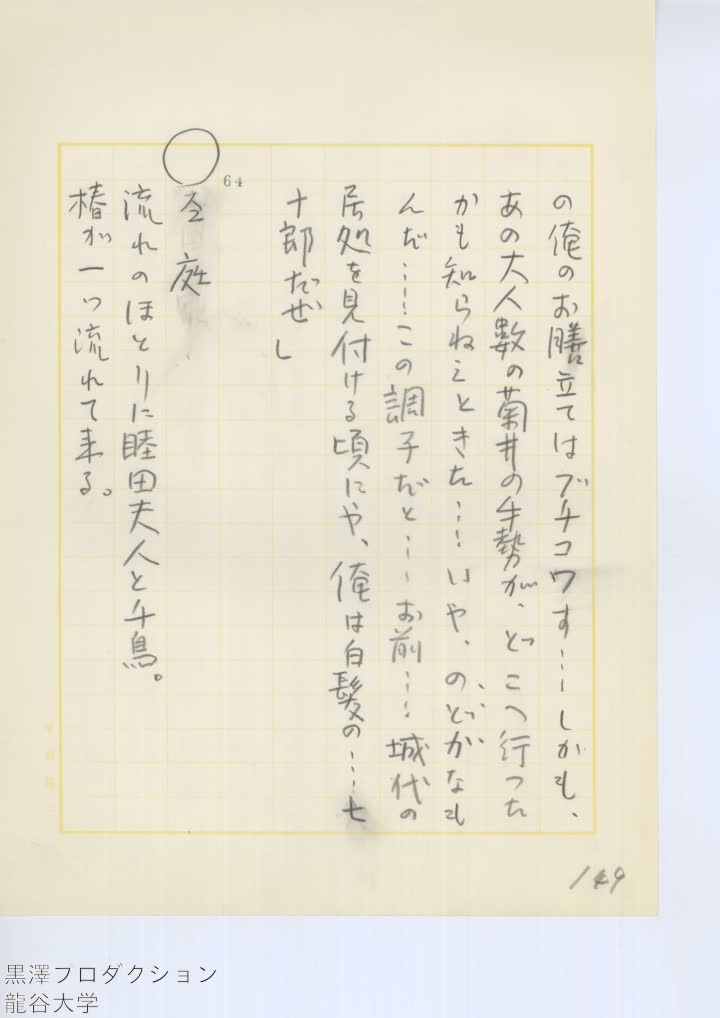 の俺のお膳立てはブチコワす……しかも、
あの大人数の菊井の手勢が、どこへ行った
かも知らねえときた……いや、のどかなも
んだ……この調子だと……お前……城代の
居処を見付ける頃にや、俺は白髪の……七
十郎だぜ」
64
○ 庭
流れのほとりに睦田夫人と千鳥。
椿が一つ流れて来る。
149
黒澤プロダクション
龍谷大学